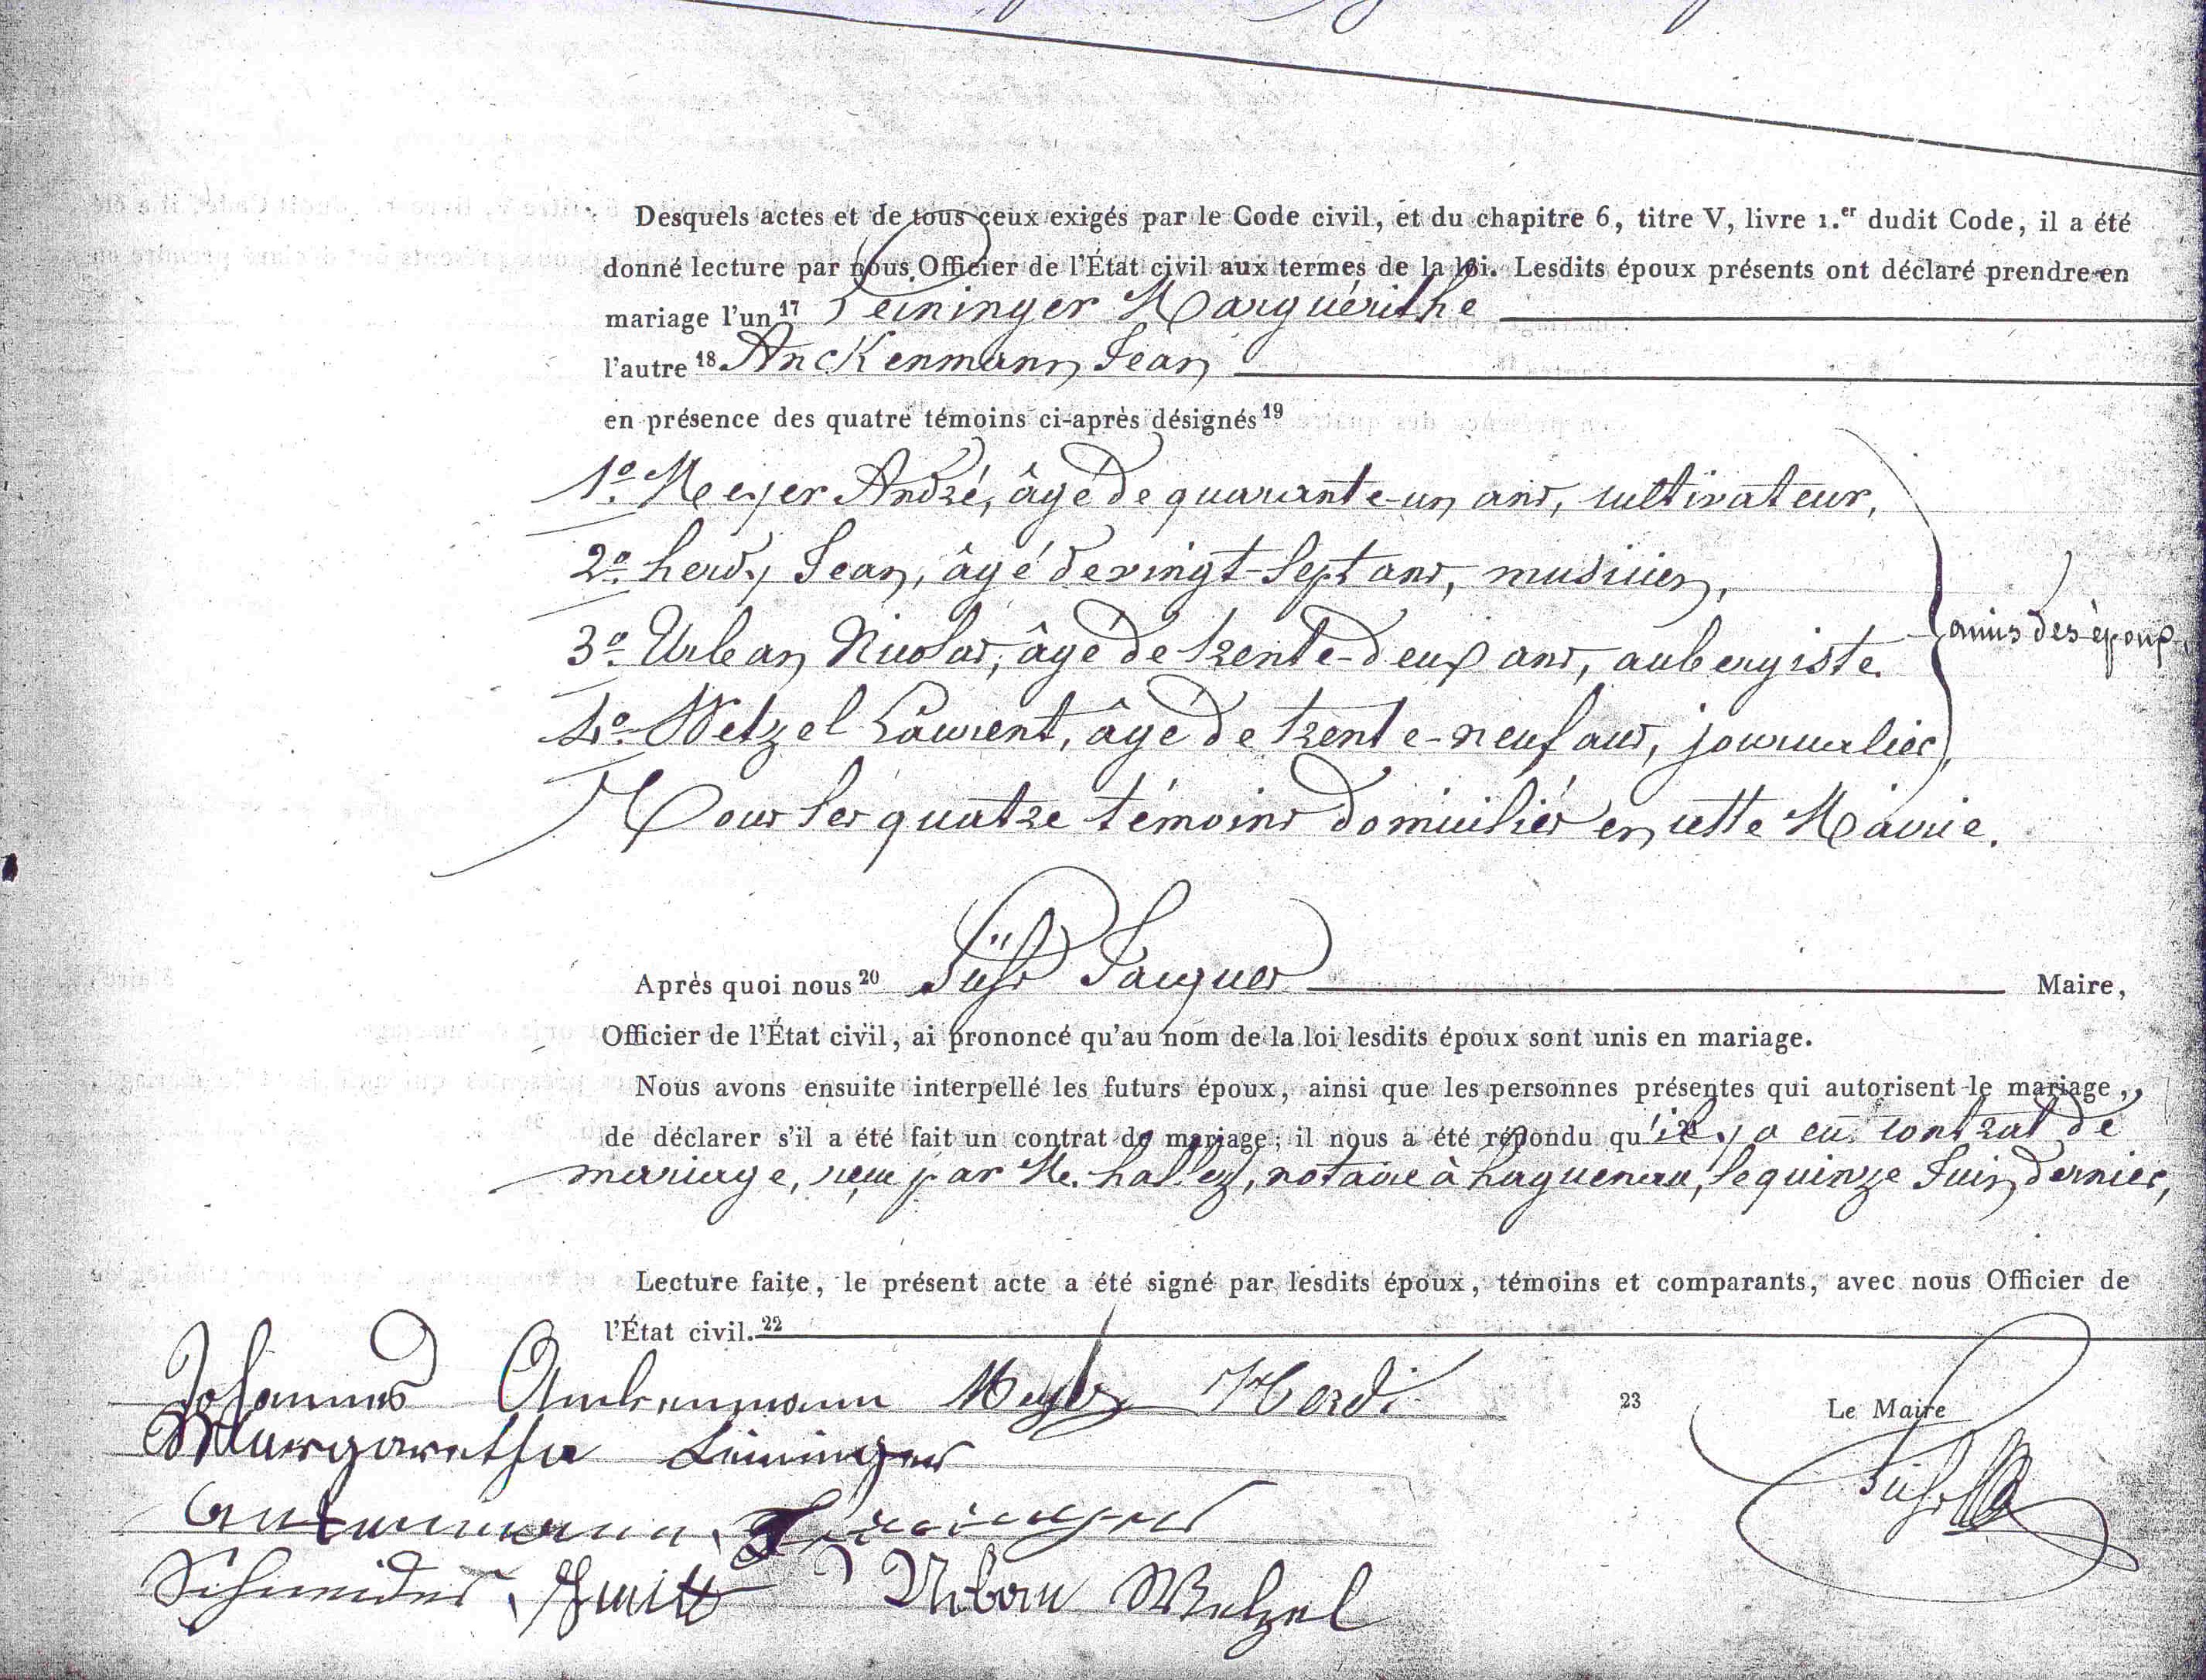 Desquels actes et de tous ceux exigés par le Code civil, et du chapitre 6, titre V, livre 1.er dudit Code, il a été
donné lecture par nous Officier de l'État civil aux termes de la loi. Lesdits époux présents ont déclaré prendre en
mariage l'un 17 Leininger Marguérithe
l'autre 18 Anckenmann Jean
en présence des quatre témoins ci-après désignés 19
1º Meyer André, âgé de quarante-un ans, cultivateur,
2º herdy Jean, âgé de vingt-sept ans, musicien,
3º Urban Nicolas, âgé de trente-deux ans, aubergiste.
4º Wetzel Laurent, âgé de trente-neuf ans, journalier,
amis des époux,
Tous les quatre témoins domiciliés en cette Mairie.
Après quoi nous 20 Sühr Jacques Maire,
Officier de l'État civil, ai prononcé qu'au nom de la loi lesdits époux sont unis en mariage.
Nous avons ensuite interpellé les futurs époux, ainsi que les personnes présentes qui autorisent le mariage,
de déclarer s'il a été fait un contrat de mariage; il nous a été répondu qu'il y a eu contrat de
mariage, reçu par Me. hallez, notaire à haguenau, le quinze Juin dernier,
Lecture faite, le présent acte a été signé par lesdits époux, témoins et comparants, avec nous Officier de
l'État civil. 22
Johannes Ankenmann Meyer Herdi 23 Le Maire
Margaretha Leininger
Ankenmann Leininger Sühr
Schneider Urban Wetzel